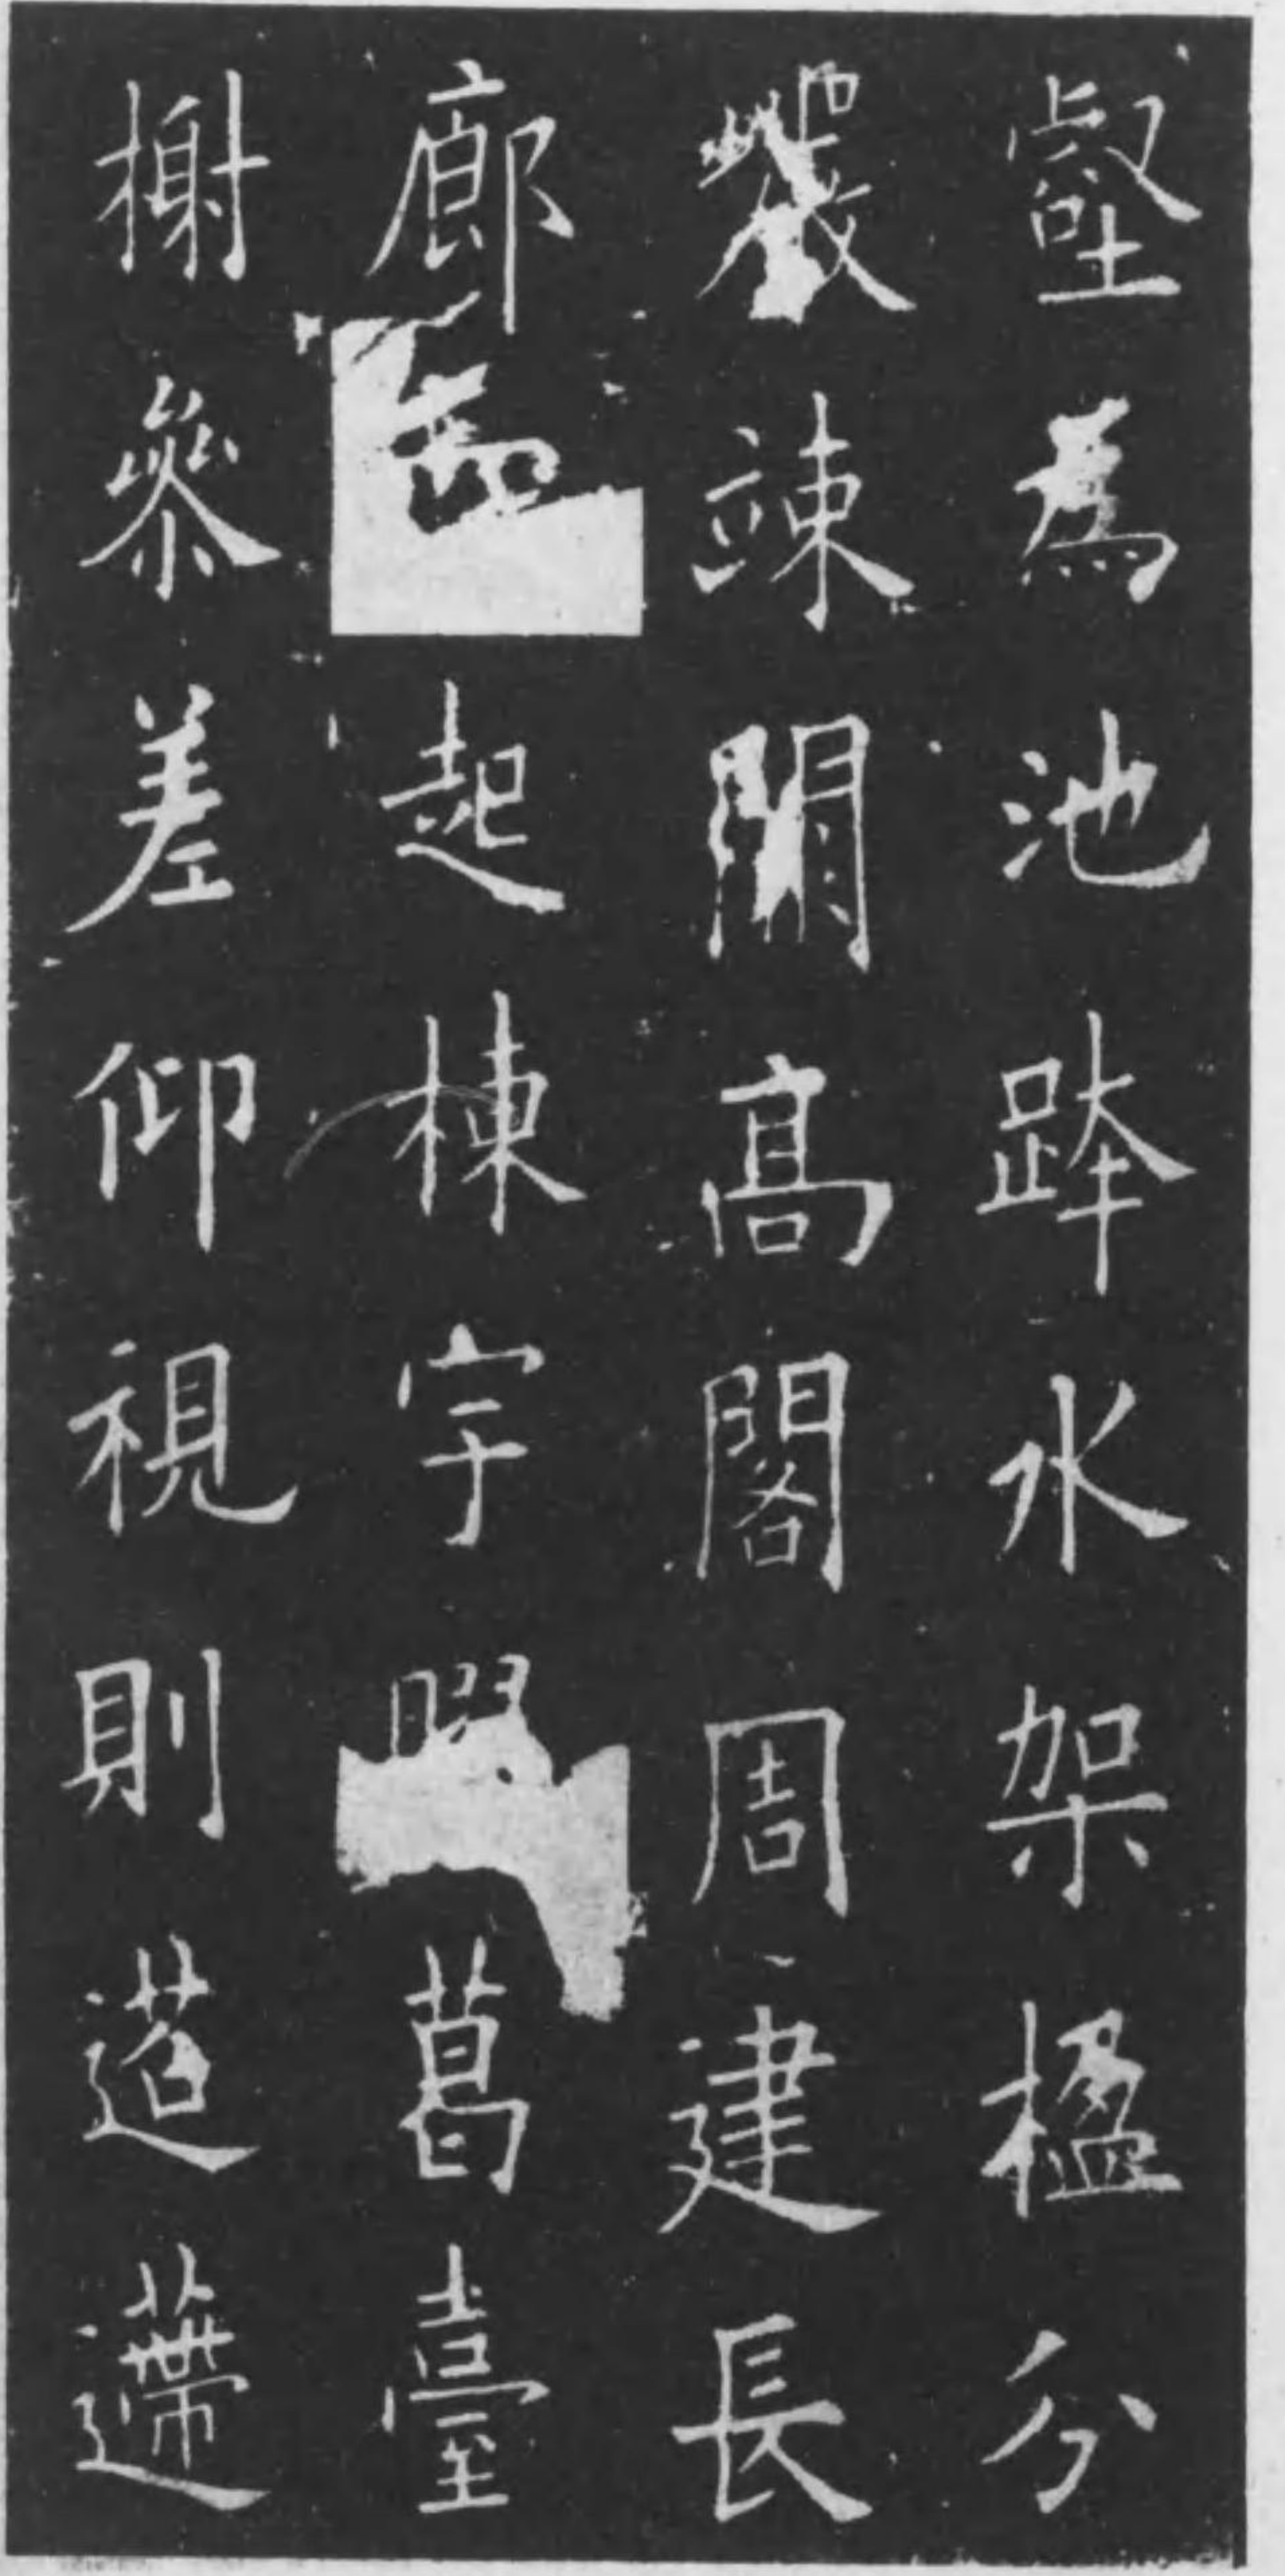 壑為池跨水架楹分
巖竦闕高閣周建長
廊四起棟宇膠葛臺
榭參差仰視則迢遰